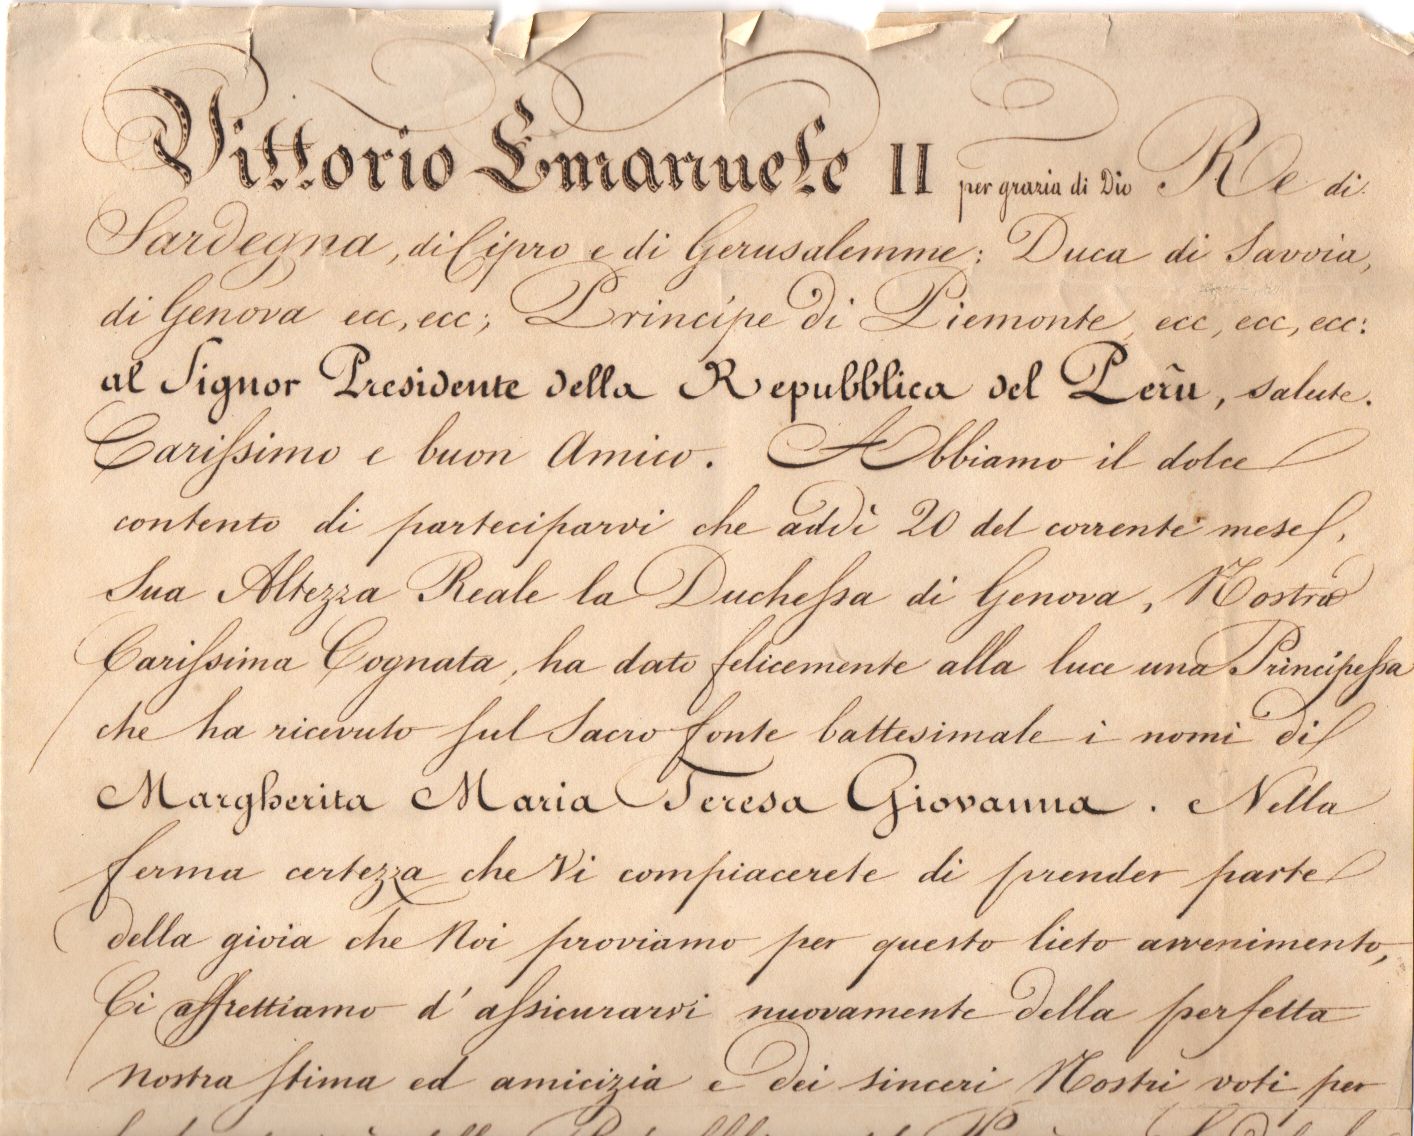 Vittorio Emanuele II per grazia di Dio Re di
Sardegna, di Cipro e di Gerusalemme: Duca di Savoia,
di Genova ecc, ecc; Principe di Piemonte, ecc, ecc, ecc:
al Signor Presidente della Repubblica del Perù, salute.
Carissimo e buon Amico. Abbiamo il dolce
contento di parteciparvi che addì 20 del corrente mese,
Sua Altezza Reale la Duchessa di Genova, Nostra
Carissima Cognata, ha dato felicemente alla luce una Principessa
che ha ricevuto sul Sacro fonte battesimale i nomi di
Margherita Maria Teresa Giovanna. Nella
ferma certezza che Vi compiacerete di prender parte
della gioia che Noi proviamo per questo lieto avvenimento,
Ci affrettiamo d'assicurarvi nuovamente della perfetta
nostra stima ed amicizia e dei sinceri Nostri voti per